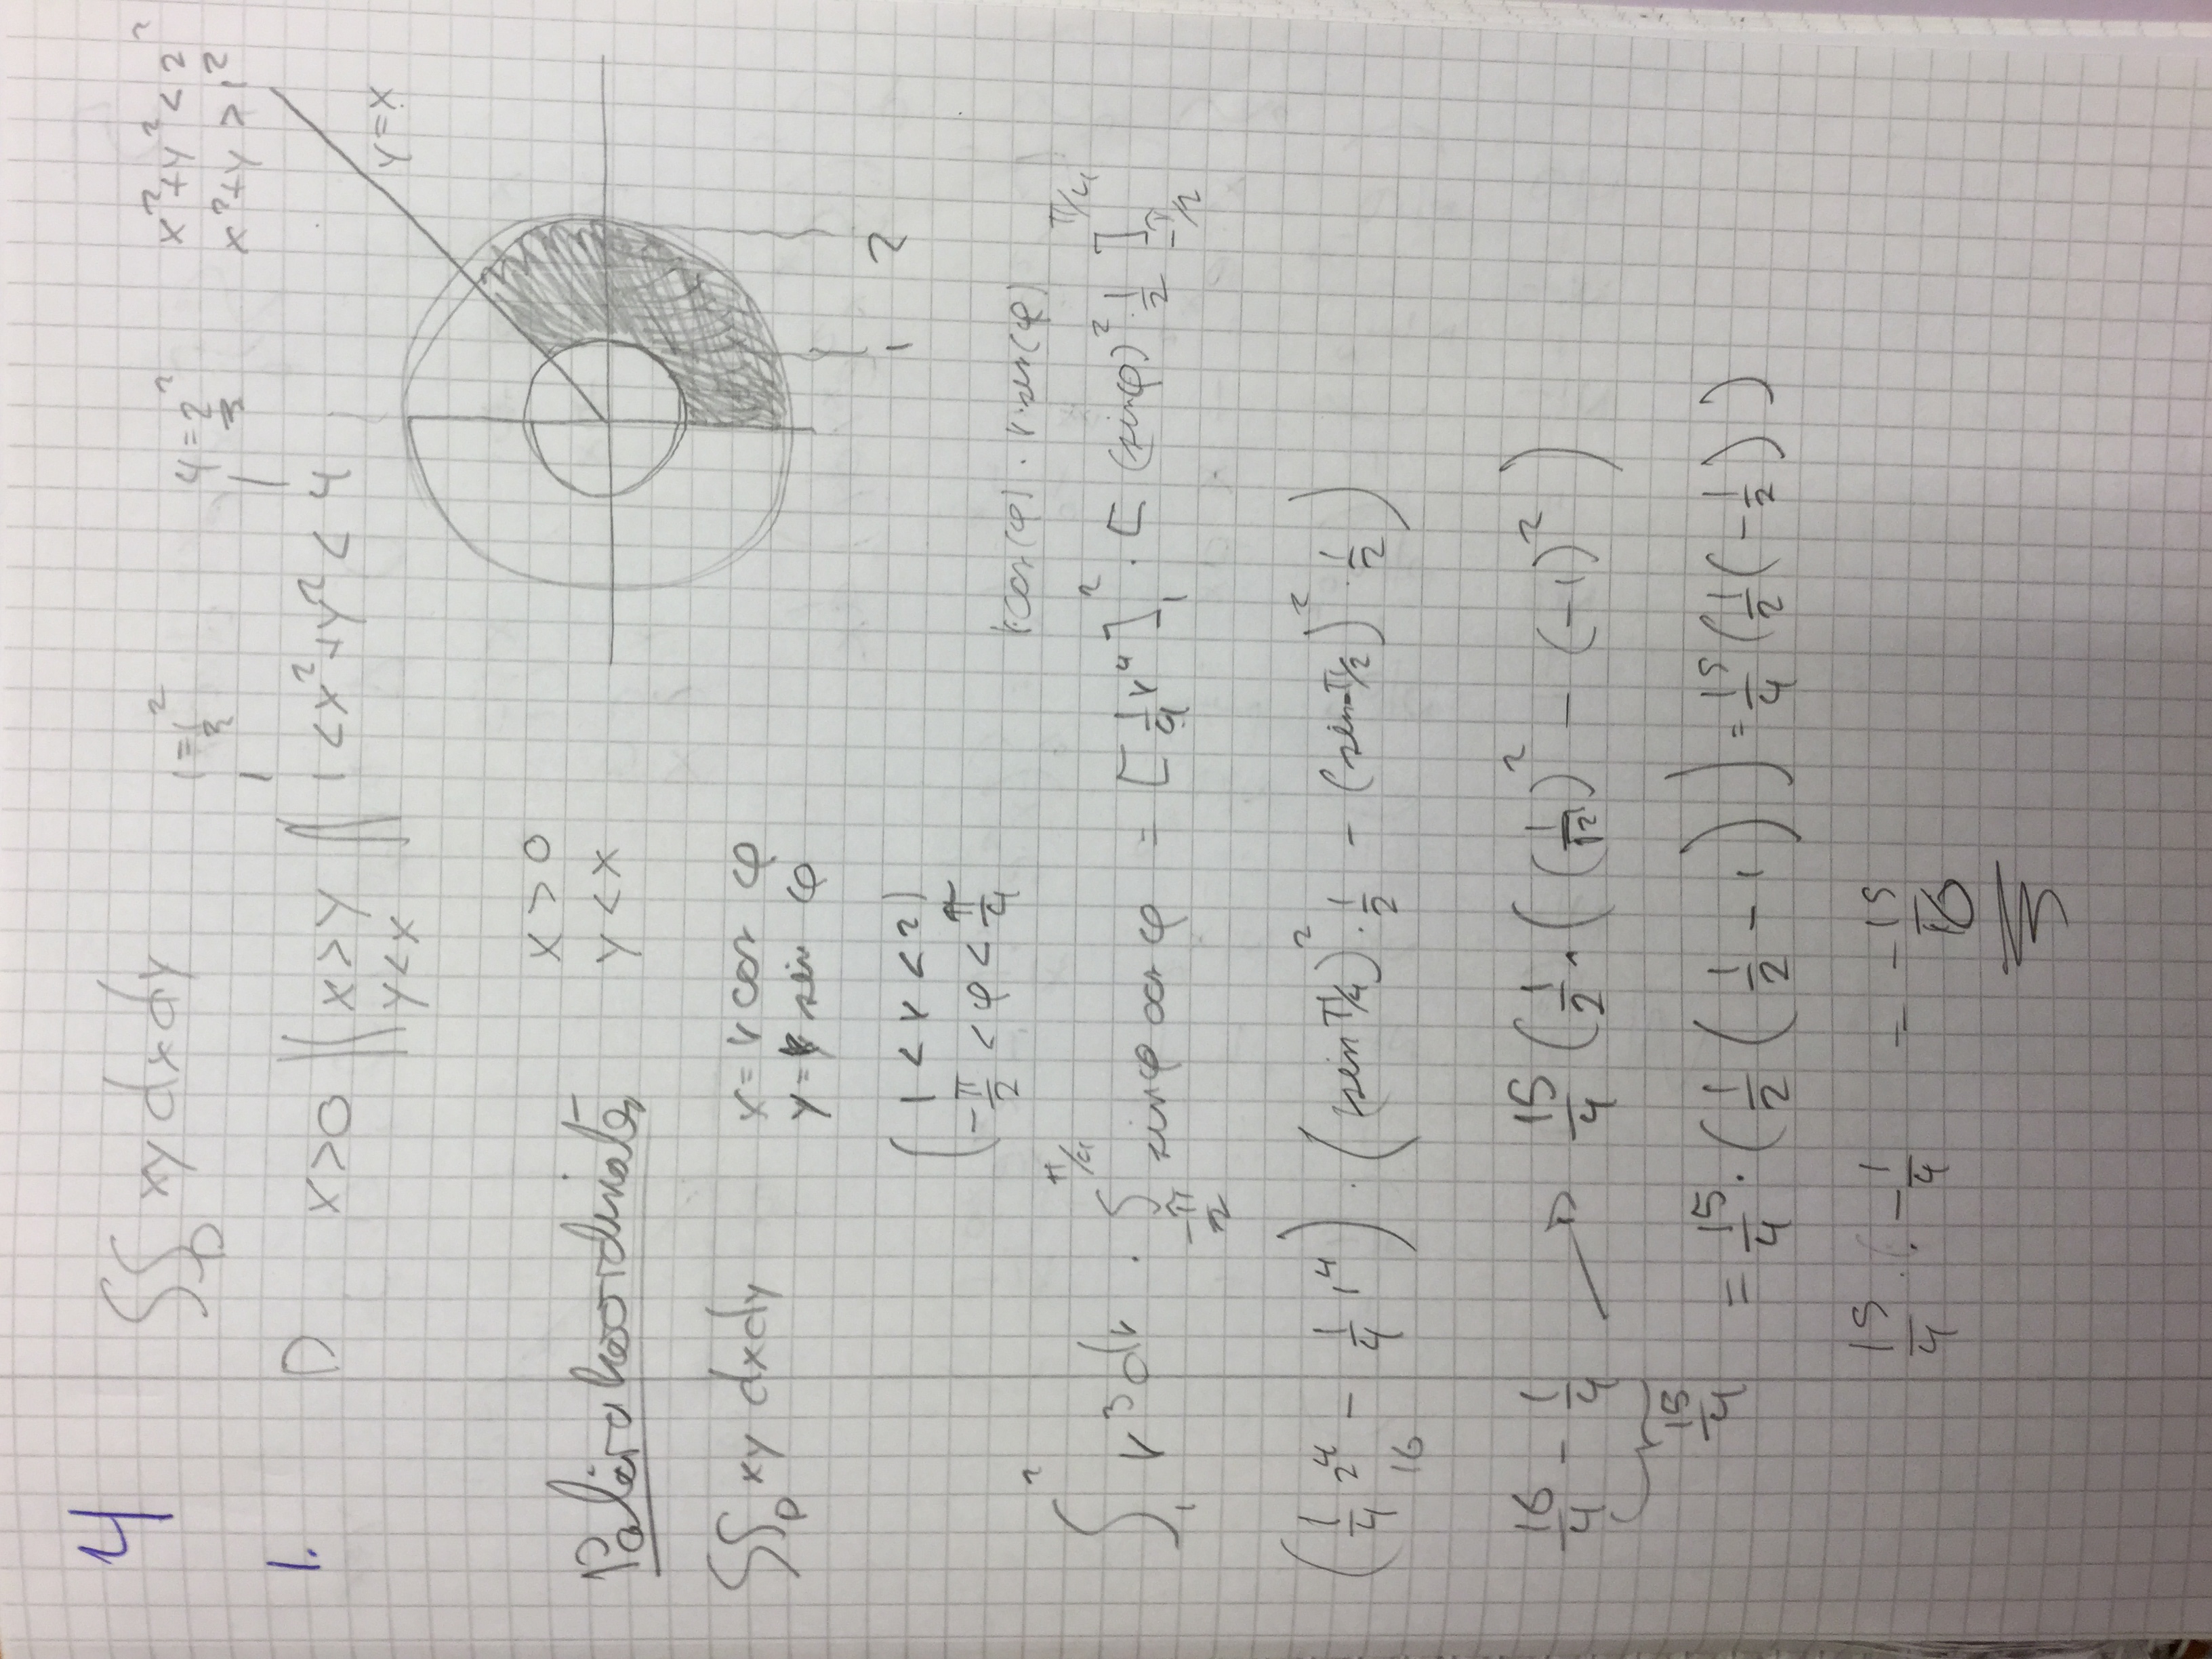 4
∫∫_D xy dxdy
1=1²
4=2²
x²+y²<2²
x²+y>1²
1.
D x>0 x>y 1<x²+y²<4
y<x
y=x
x>0
y<x
Polära koordinater
∫∫_D xy dxdy
x=r cos φ
y=r sin φ
1 2
(1<r<2)
-π/2<φ<π/4
r·cos(φ)·r·sin(φ)
∫_1^2 r³dr · ∫_{-π/2}^{π/4} sinφ cos φ = [1/4 r⁴]_1^2 · [(sinφ)²·1/2]_{-π/2}^{π/4}
(1/4 2⁴ - 1/4 1⁴) · ((sin π/4)²·1/2 - (sin-π/2)²·1/2)
16
16/4 - 1/4 → 15/4 (1/2·((1/√2)² - (-1)²)
15/4
= 15/4·(1/2(1/2-1)) = 15/4(1/2(-1/2))
15/4 · -1/4 = -15/16